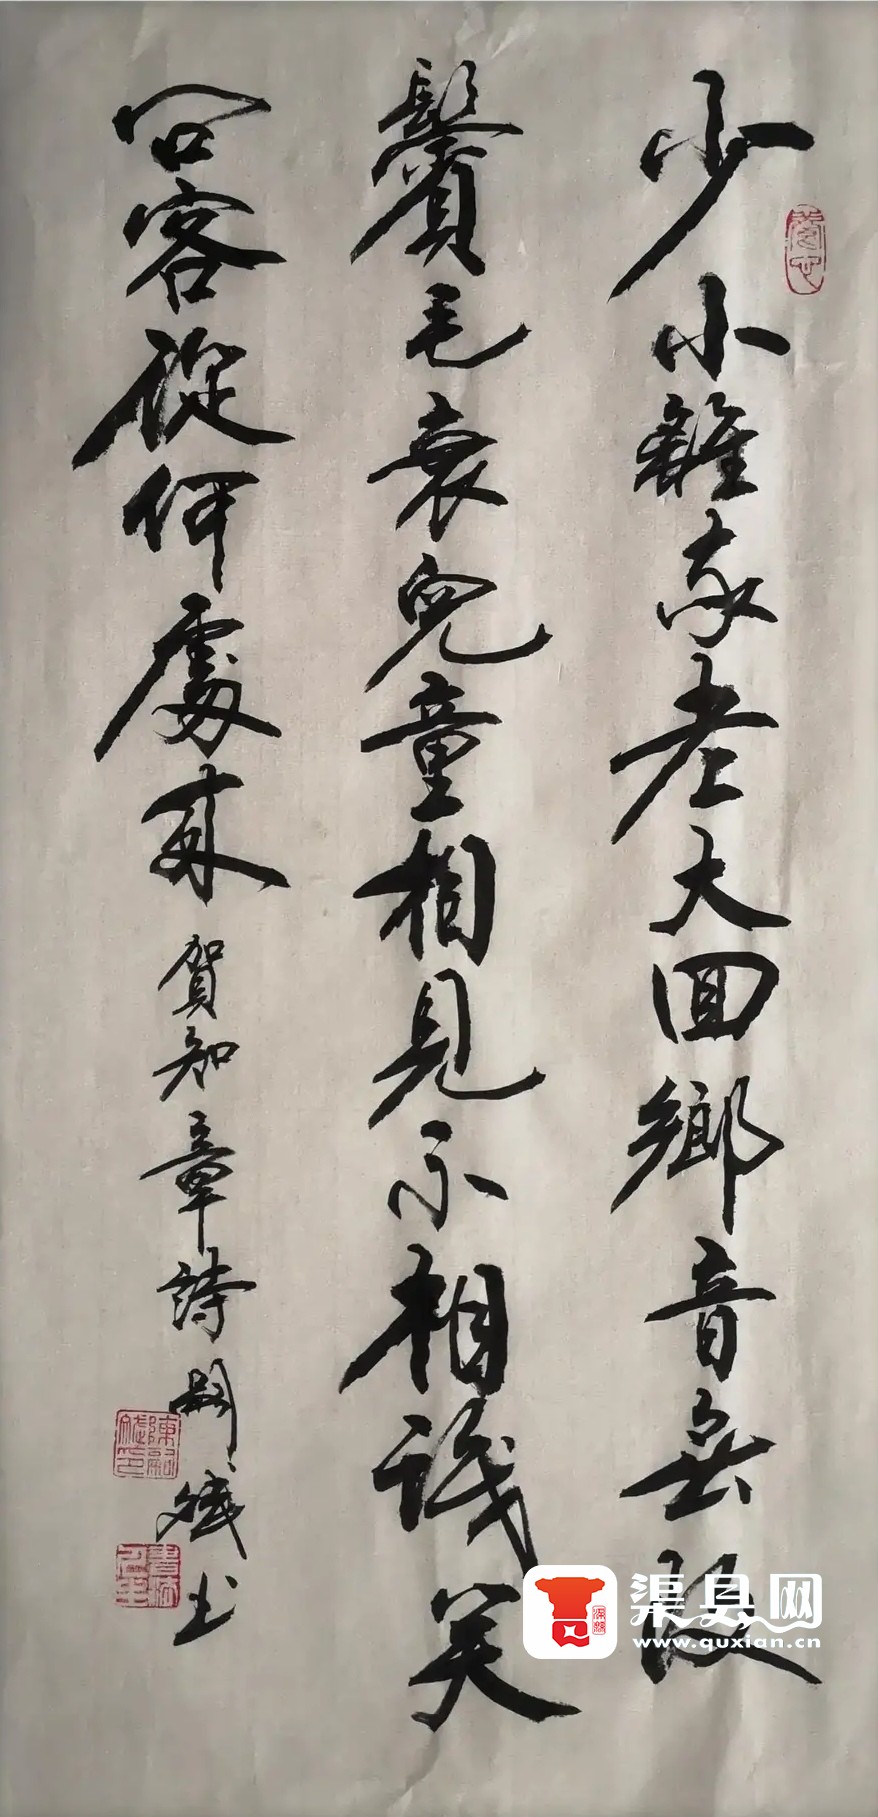 少小離家老大回鄉音無改
鬢毛衰兒童相見不相識笑
問客從何處來 賀知章詩 嗣斌书
陳嗣斌印
渠县网
www.quxian.cn